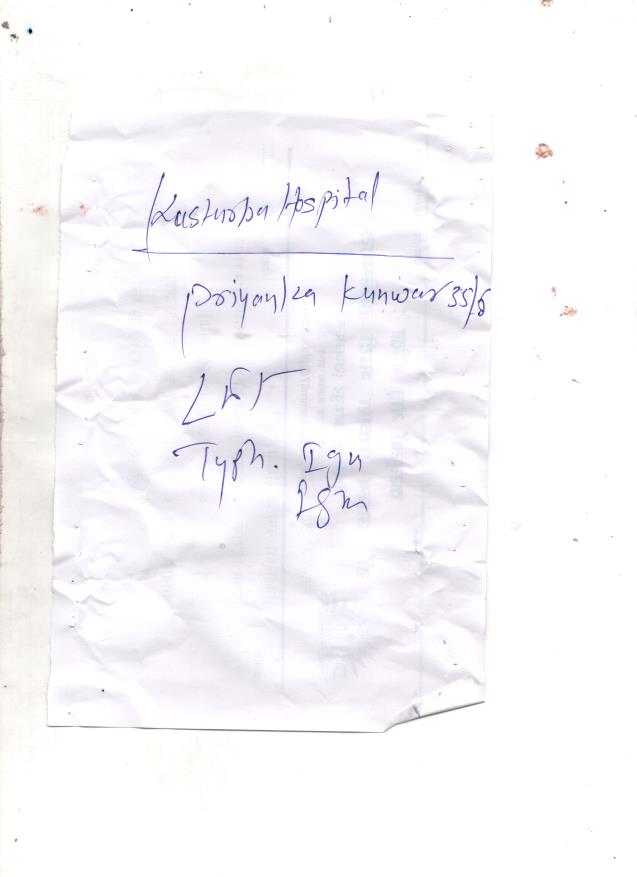 Kasturba Hospital
Priyanka Kunwar 35/F
LFT
Typh. IgG
IgM